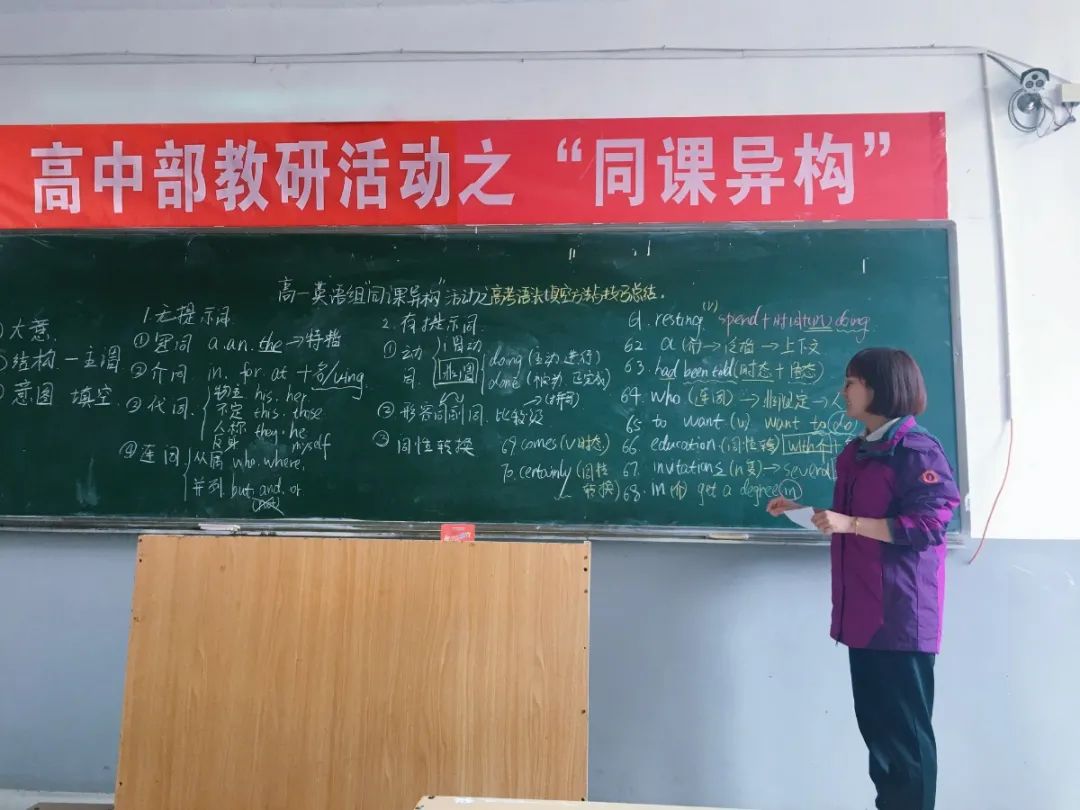 高中部教研活动之“同课异构”
高一英语组“同课异构”活动之高考语法填空方法与技巧总结.
大意.
结构 一 主谓
意图 填空
1.无提示词
①冠词 a.an.the→特指
②介词 in. for. at +名/ving
③代词
物主 his. her
不定 this. those
人称 they. he
反身 myself
④连词
从属 who. where,
并列 but. and. or
2. 有提示词
①动词
谓动
非谓
doing (主动 进行)
done (被动 已完成)
②形容词 副词 比较级
③词性转换
69 comes (v 时态)
70. certainly (词性转换)
61. resting. (v) spend + 时间(in) doing
62. a (冠)→泛指→上下文
63. had been told (时态+语态)
64. who (连词)→非限定→人
65 to want (v) want to do
66 education (词性转)
67. invitations (n 复)→several
68. in (介) get a degree in